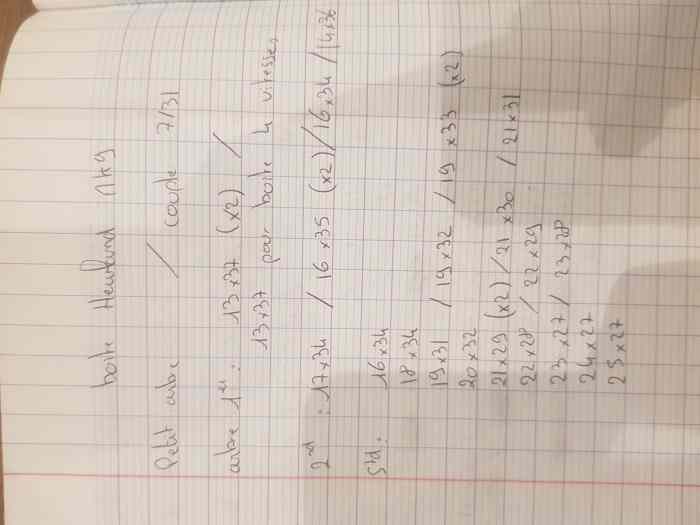 boite Hewland MK9
Petit arbre / couple 7/31
arbre 1er : 13x37 (x2) /
13x37 pour boite 4 vitesses
2nd : 17x34 / 16x35 (x2) / 16x34 / 14x36
Std :
16x34
18x34
19x31 / 19x32 / 19x33 (x2)
20x32
21x29 (x2) / 21x30 / 21x31
22x28 / 22x29
23x27 / 23x28
24x27
25x27